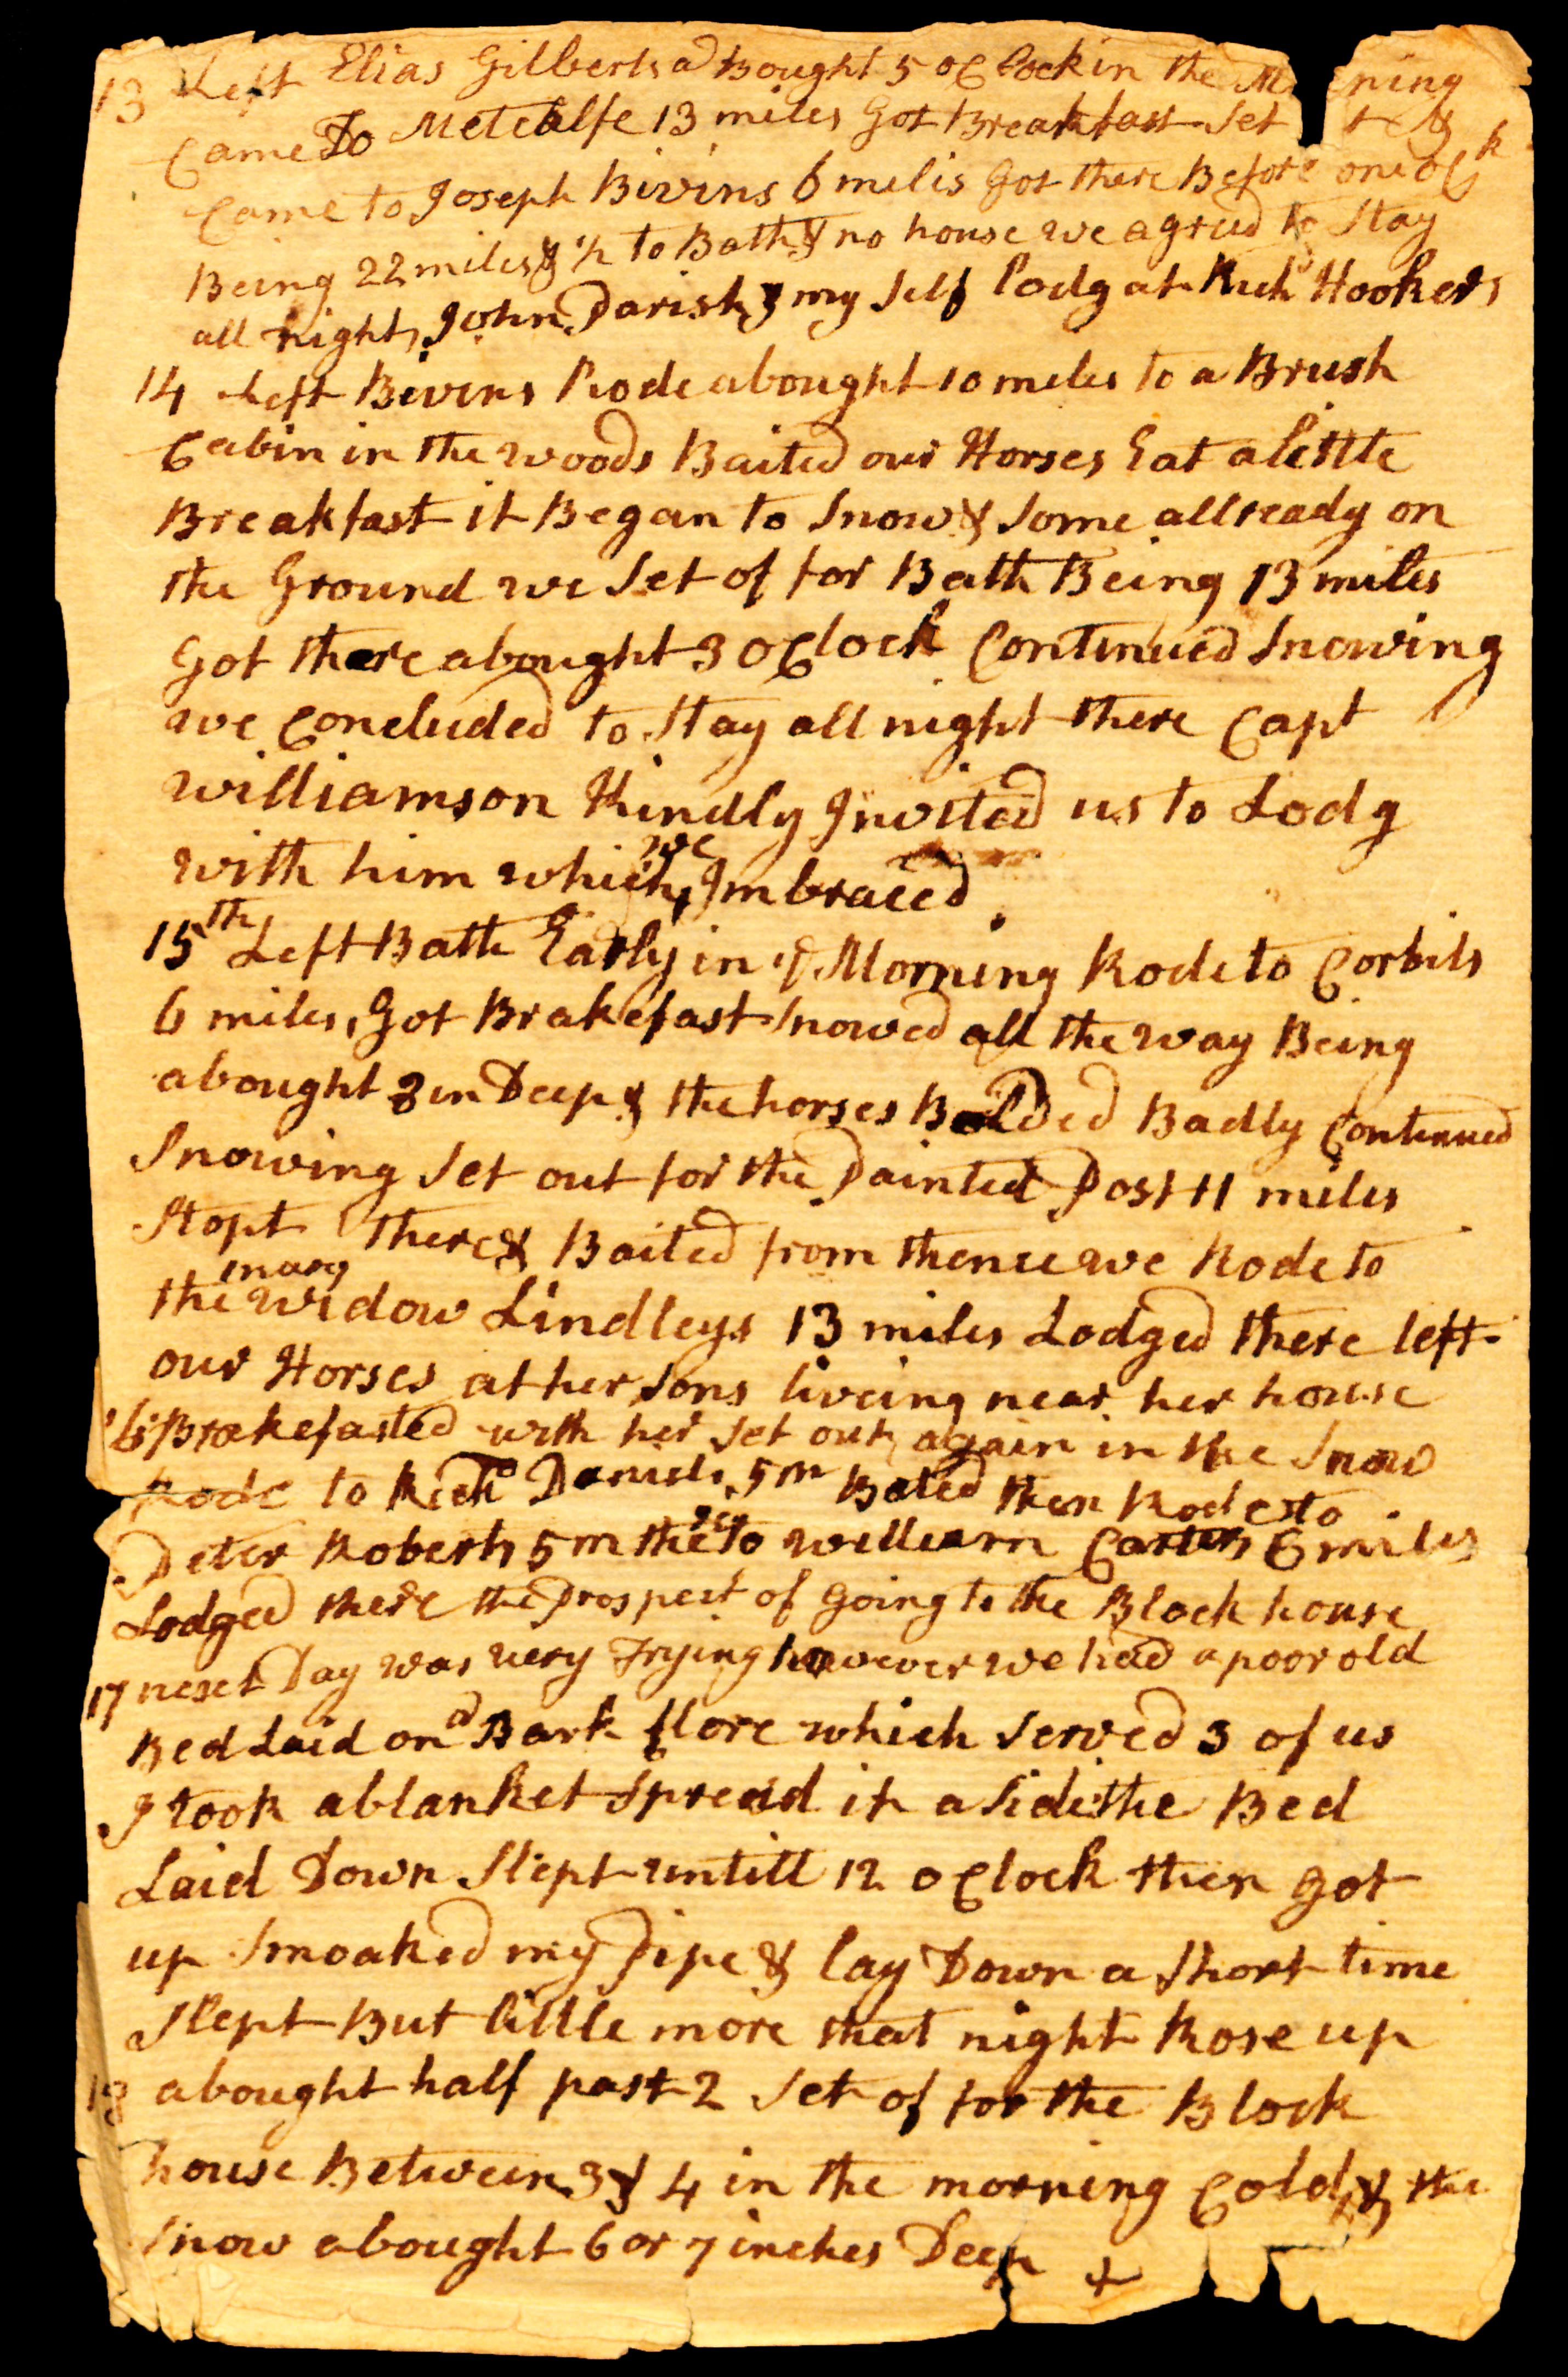 13 Left Elias Gilberts abought 5 oClock in the M ning
Came To Metcalfe 13 miles Got Breakfast Set
Came to Joseph Bivins 6 melis Got there Before one oCk
Being 22 miles & 1/2 to Bath & no house we agreed to Stay
all night, John Parish & my Self Lodg at Richd Hookers
14 Left Bivens Rode abought 10 miles to a Brush
Cabin in the woods Baited our Horses Eat a Little
Breakfast it Began to Snow & Some allready on
the Ground we Set of for Bath Being 13 miles
Got there abought 3 oClock Continued Snowing
we Concluded to Stay all night there Capt
Williamson Kindly Invited us to Lodg
with him which we Imbraced
15th Left Bath Early in ye Morning Rode to Corbits
6 miles, Got Brakefast Snowed all the way Being
abought 3 in Deep & the horses Balded Badly Continued
Snowing Set out for the Painted Post 11 miles
Stopt there & Baited from thence we Rode to
the widow mary Lindleys 13 miles Lodged there left
our Horses at her Sons liveing near her house
16 Brakefasted with her Set out again in the Snow
Rode to Richd Daniels 5m Bated then Rode to
Peter Roberts 5m then to William Carters 6 miles
Lodged there the Prospect of Going to the Block house
17 nesct Day was very Trying however we had a poor old
Bed Laid on a Bark flore which Served 3 of us
I took a blanket Spread it a Side the Bed
Laid Down Slept untill 12 oClock then got
up Smoaked my Pipe & lay Down a Short time
Slept But little more that night Rose up
18 abought half past 2 Set of for the Block
house Between 3 & 4 in the morning Cold & the
Snow abought 6 or 7 inches Deep +